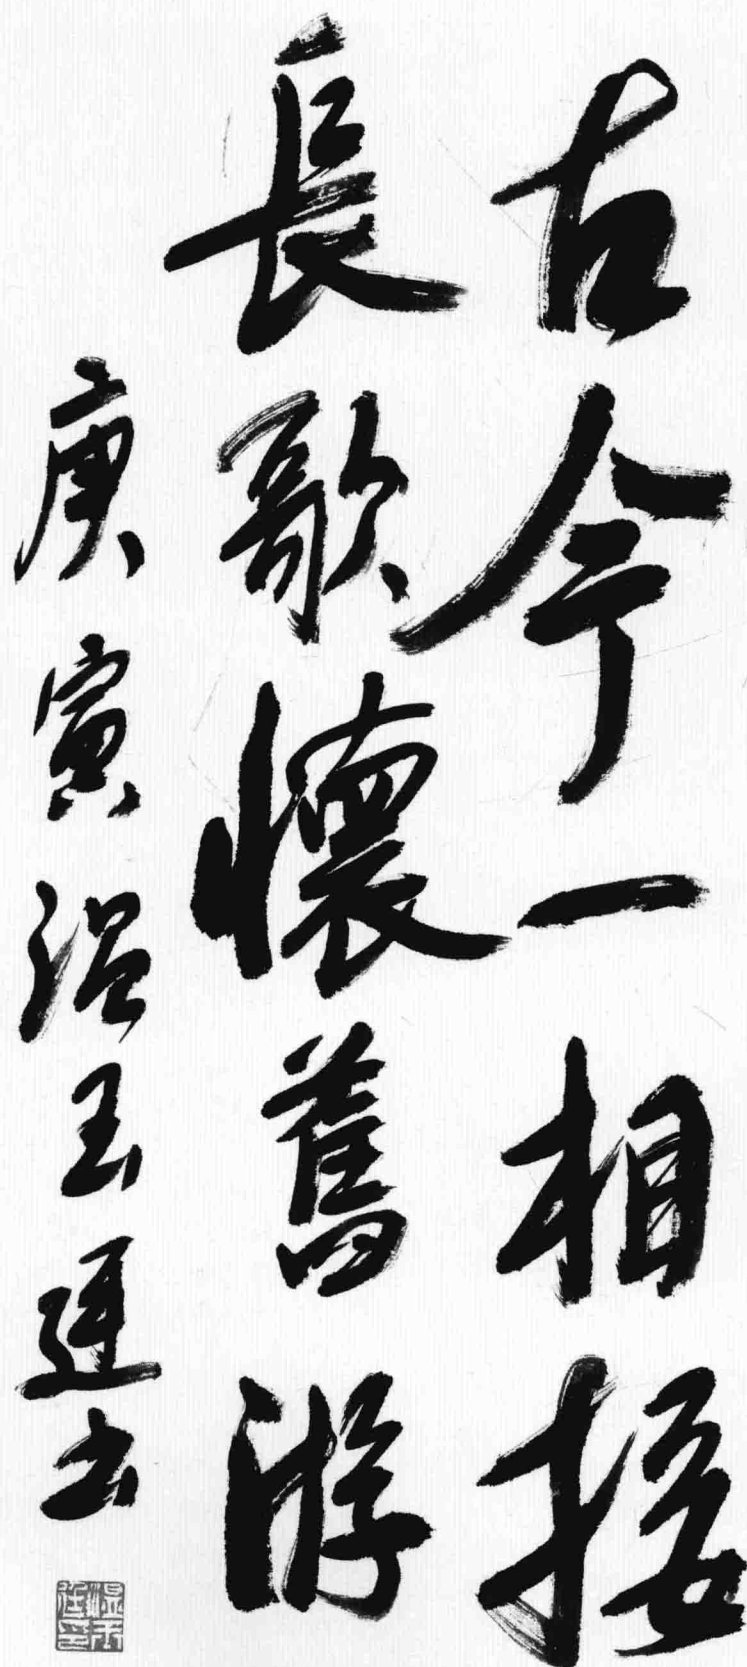 古今一相接
長歌懷舊游
庚寅温玉連书